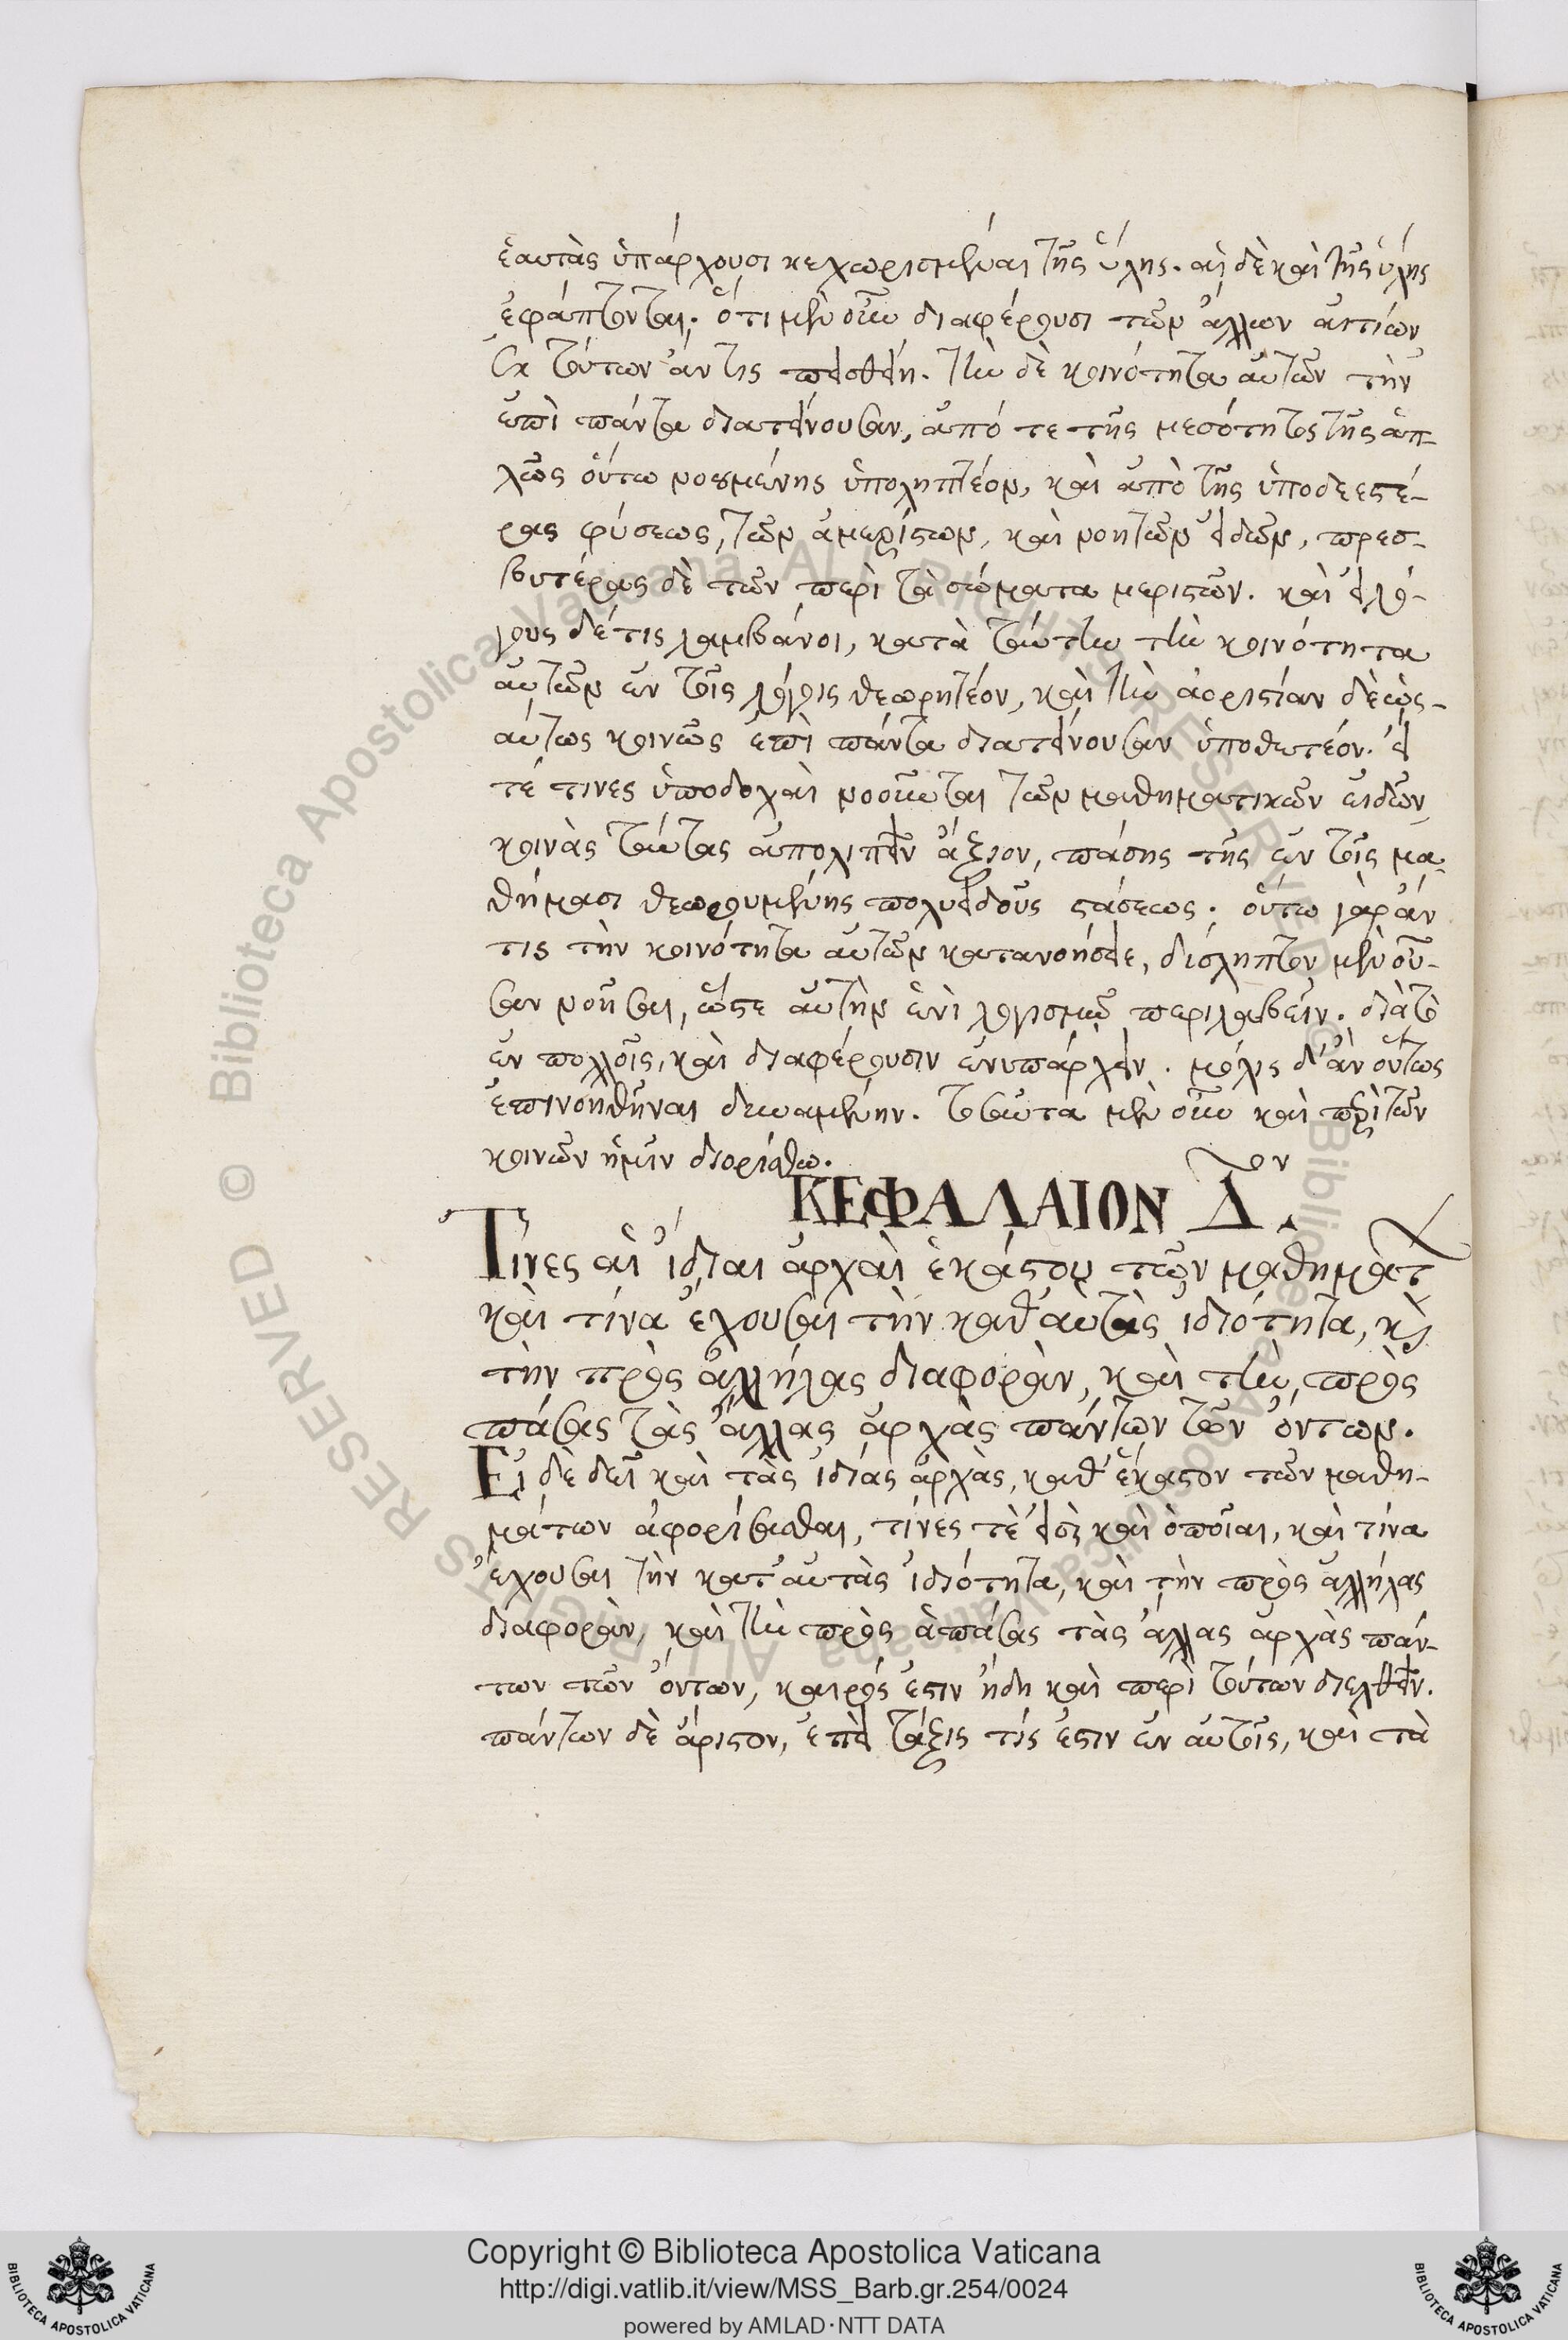 ἑαυτὰς ὑπάρχουσι κεχωρισμέναι τῆς ὕλης. αἱ δὲ καὶ τῆς ὕλης
ἐφάπτονται. ὅτι μὲν οὖν διαφέρουσι τῶν ἄλλων αἰτίων
ἐκ τούτων ἄν τις πεισθείη. τὴν δὲ κοινότητα αὐτῶν τὴν
ἐπὶ πάντα διατείνουσαν, ἀπό τε τῆς μεσότητος τῆς ἁπ-
λῶς οὕτω νοουμένης ὑποληπτέον, καὶ ἀπὸ τῆς ὑποδεεστέ-
ρας φύσεως, τῶν ἀμερίστων, καὶ νοητῶν εἰδῶν, πρεσ-
βυτέρας δὲ τῶν περὶ τὰ σώματα μεριστῶν. καὶ εἰ λό-
γους δέ τις λαμβάνοι, κατὰ ταύτην τὴν κοινότητα
αὐτῶν ἐν τοῖς λόγοις θεωρητέον, καὶ τὴν ἀοριστίαν δὲ ὡς-
αύτως κοινῶς ἐπὶ πάντα διατείνουσαν ὑποθετέον. εἴ
τέ τινες ὑποδοχαὶ νοοῦνται τῶν μαθηματικῶν εἰδῶν,
κοινὰς ταύτας ἀπολιπεῖν ἄξιον, πάσης τῆς ἐν τοῖς μα-
θήμασι θεωρουμένης πολυειδοῦς στάσεως. οὕτω γὰρ ἄν
τις τὴν κοινότητα αὐτῶν κατανοήσειε, δύσληπτον μὲν οὖ-
σαν νοῆσαι, ὥστε αὐτὴν ἑνὶ λογισμῷ περιλαβεῖν. διὰ τὸ
ἐν πολλοῖς, καὶ διαφέρουσιν ἐνυπάρχειν. μόλις δ' ἂν οὕτως
ἐπινοηθῆναι δυναμένην. ταῦτα μὲν οὖν καὶ περὶ τῶν
κοινῶν ἡμῖν διορίσθω.
ΚΕΦΑΛΑΙΟΝ Δον.
Τίνες αἱ ἴδιαι ἀρχαὶ ἑκάστου τῶν μαθημάτ
καὶ τίνα ἔχουσαι τὴν καθ' αὑτὰς ἰδιότητα, κὶ
τὴν πρὸς ἀλλήλας διαφορὰν, καὶ τὴν, πρὸς
πάσας τὰς ἄλλας ἀρχὰς πάντων τῶν ὄντων.
Εἰ δὲ δεῖ καὶ τὰς ἰδίας ἀρχὰς, καθ' ἕκαστον τῶν μαθη-
μάτων ἀφορίσασθαι, τίνες τέ εἰσι καὶ ὁποῖαι, καὶ τίνα
ἔχουσαι τὴν κατ' αὐτὰς ἰδιότητα, καὶ τὴν πρὸς ἀλλήλας
διαφορὰν, καὶ τὴν πρὸς ἁπάσας τὰς ἄλλας ἀρχὰς πάν-
των τῶν ὄντων, καιρός ἐστιν ἤδη καὶ περὶ τούτων διελθεῖν.
πάντων δὲ ἄριστον, ἐπεὶ τάξις τίς ἐστιν ἐν αὐτοῖς, καὶ τὰ
Copyright © Biblioteca Apostolica Vaticana
http://digi.vatlib.it/view/MSS_Barb.gr.254/0024
powered by AMLAD·NTT DATA